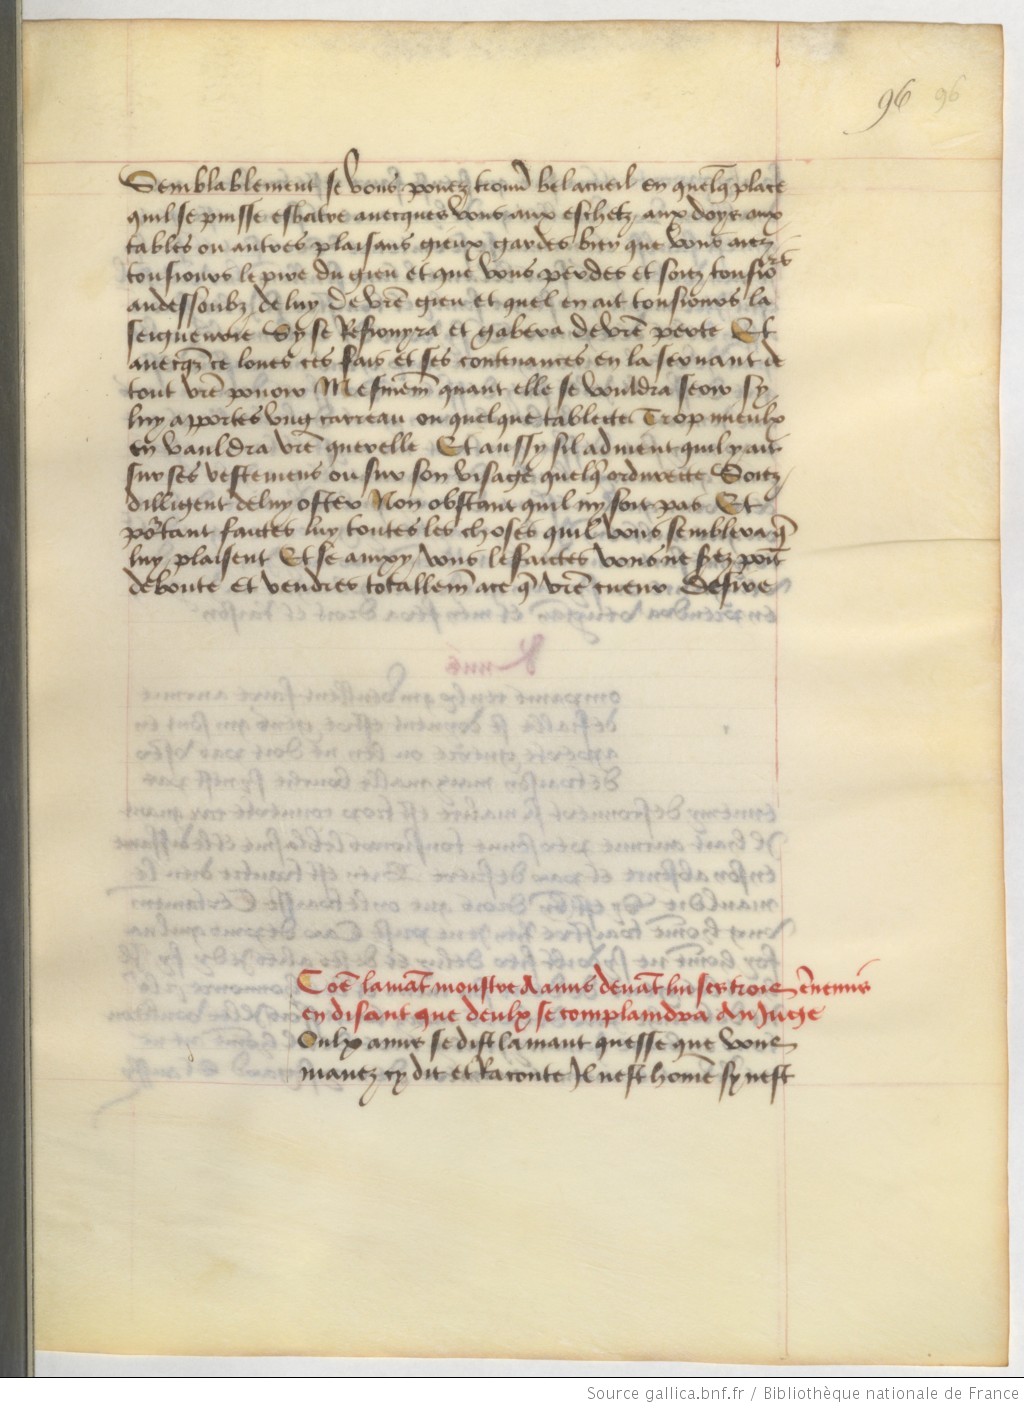 96 96
Semblablement se vous pouez trouuer bel acueil en quelq̃ place
quil se puisse esbatre auecques vous aux eschetz aux doys aux
tables ou autres plaisans gieux gardes bien que vous aiez
tousiours le pire du gieu et que vous perdes et soiez tousiours
audessoubz de luy de vr̃e gieu et quel en ait tousiours la
seigneurie Sy se Resiouyra et gabera de vr̃e perte Et
auecq̃ ce loues ces fais et ses contenances en la seruant de
tout vr̃e pouoir Mesmem̃ quant elle se vouldra seoir sy
luy apportes vng carreau ou quelque tablecte Trop mieulx
en vauldra vr̃e querelle Et aussy sil aduient quil y ait
sur ses vestemens ou sur son visage quelq̃ ordurecte Soiez
dilligent de luy oster Non obstant quil ny soit pas Et
pourtant faictes luy toutes les choses quil vous semblera q̃
luy plaisent Et se ainxy vous le faictes vous ne serez point
deboute et vendres totallem̃ a ce q̃ vr̃e cueur desire
Coẽ lamãt monstre A amis deuãt lui ses trois ẽnemis
en disant que deulx se complaindra Au Juge
Oulx amis se dist lamant quesse que vous
mauez cy dit et Raconte Il nest hom̃e sy nest
Source gallica.bnf.fr / Bibliothèque nationale de France